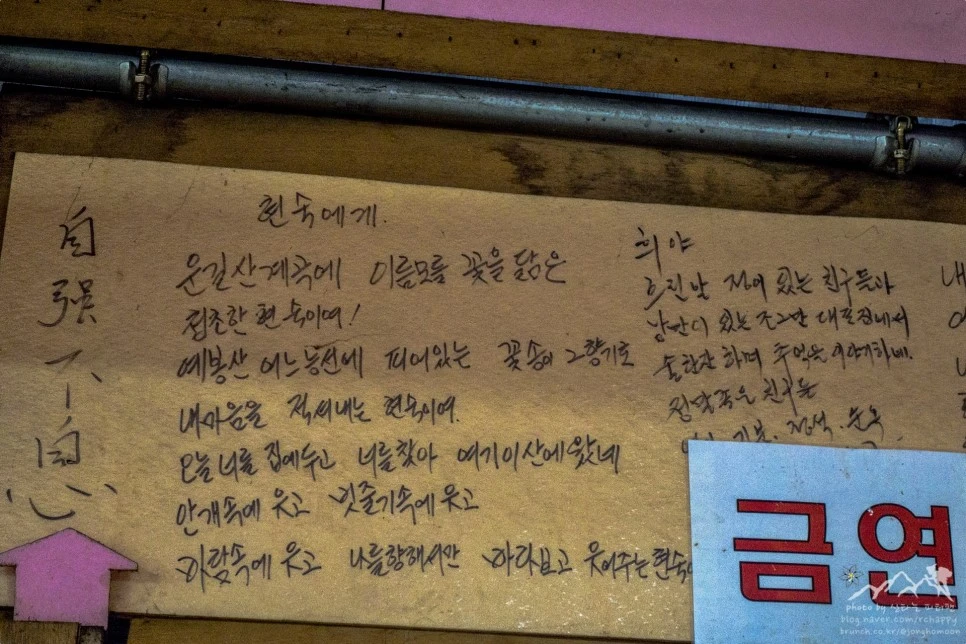 自
强
不
息
현숙에게.
운길산계곡에 이름모를 꽃을 닮은
청초한 현숙이여!
예봉산 어느능선에 피어있는 꽃송이 그향기로
내마음을 적셔내는 현숙이여.
오늘 너를 집에두고 너를찾아 여기이산에왔네
안개속에 웃고 빗줄기속에 웃고
바람속에 웃고 나를향해서만 바라보고 웃어주는현숙
희야
흐린날 정이 있는 친구들과
낭만이 있는 조그만 대포집에서
술한잔 하며 추억은 이야기하네.
정말 좋은 친구들
금연
photo by
blog.naver.com/rchappy
brunch.co.kr/@jonghomoon